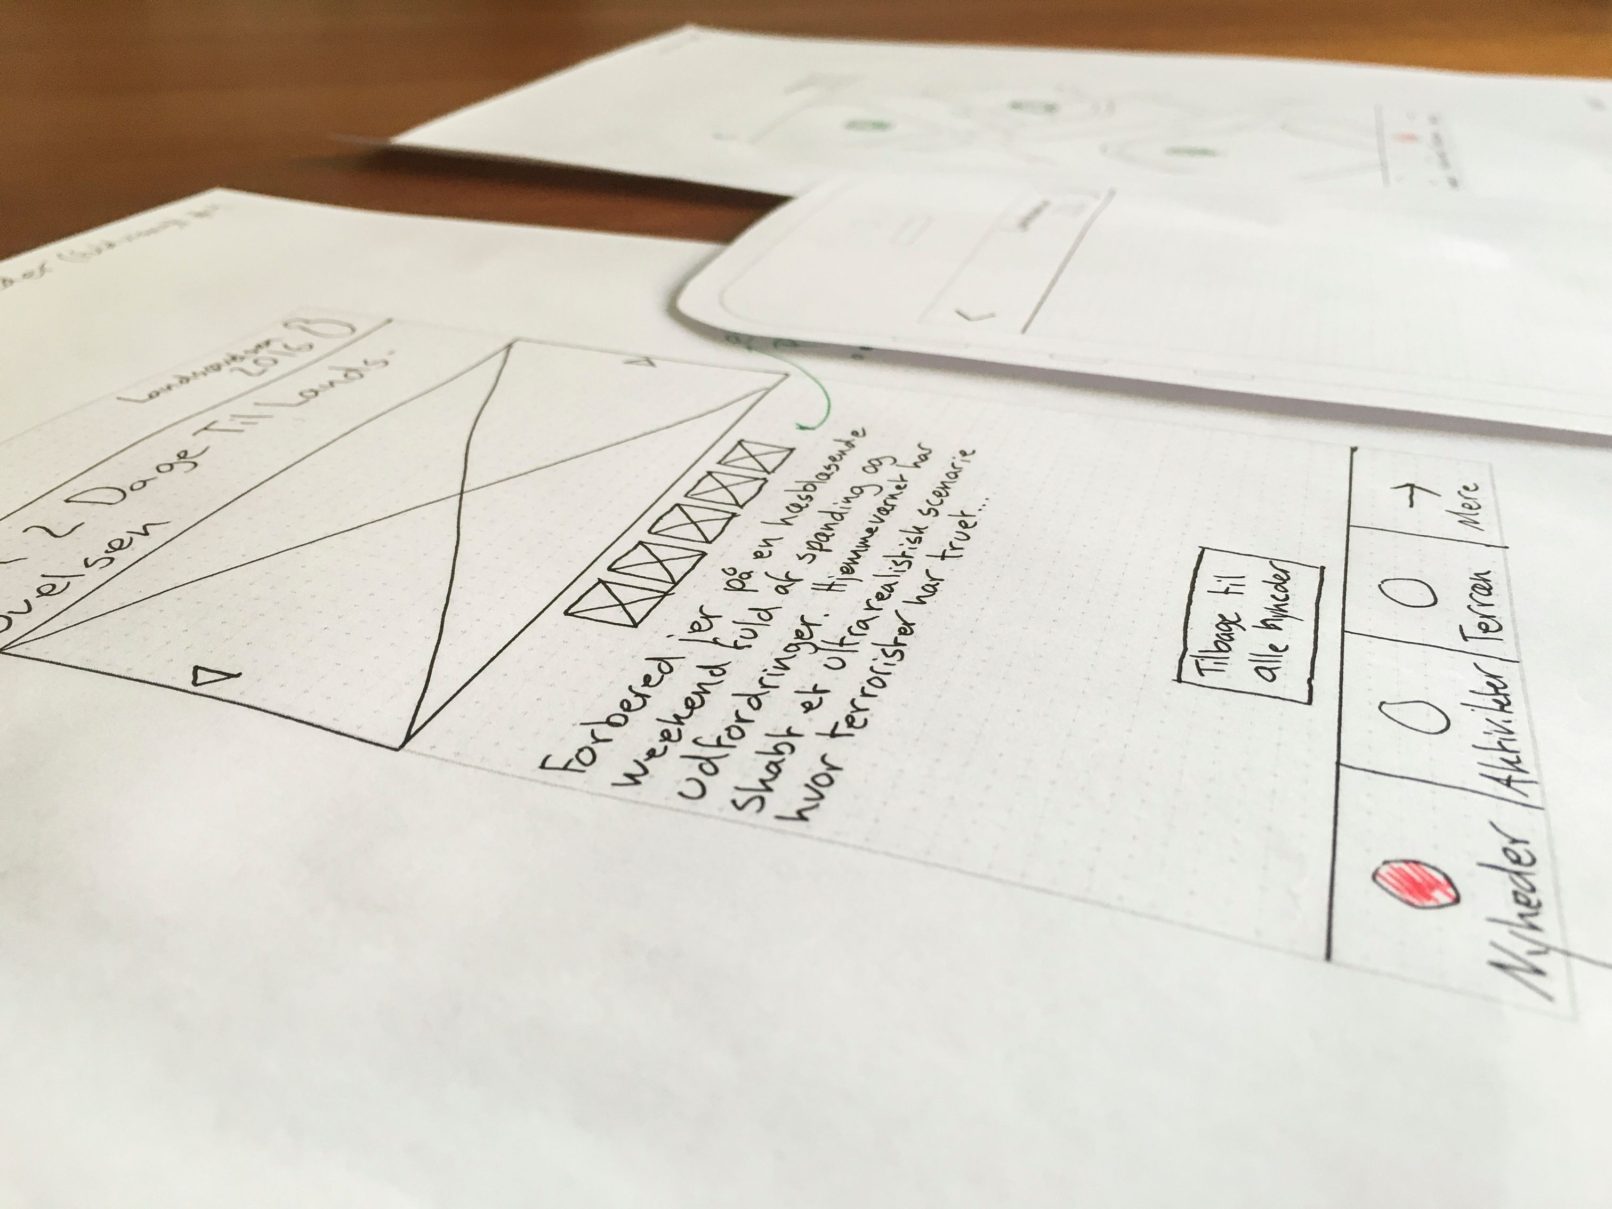 2016
2 Dage Til Lands-
øvelsen
Forbered jer på en hæsblæsende
weekend fuld af spænding og
udfordringer. Hjemmeværnet har
skabt et ultrarealistisk scenarie
hvor terrorister har truet...
Tilbage til
alle nyheder
Nyheder
Aktiviteter
Terræn
Mere